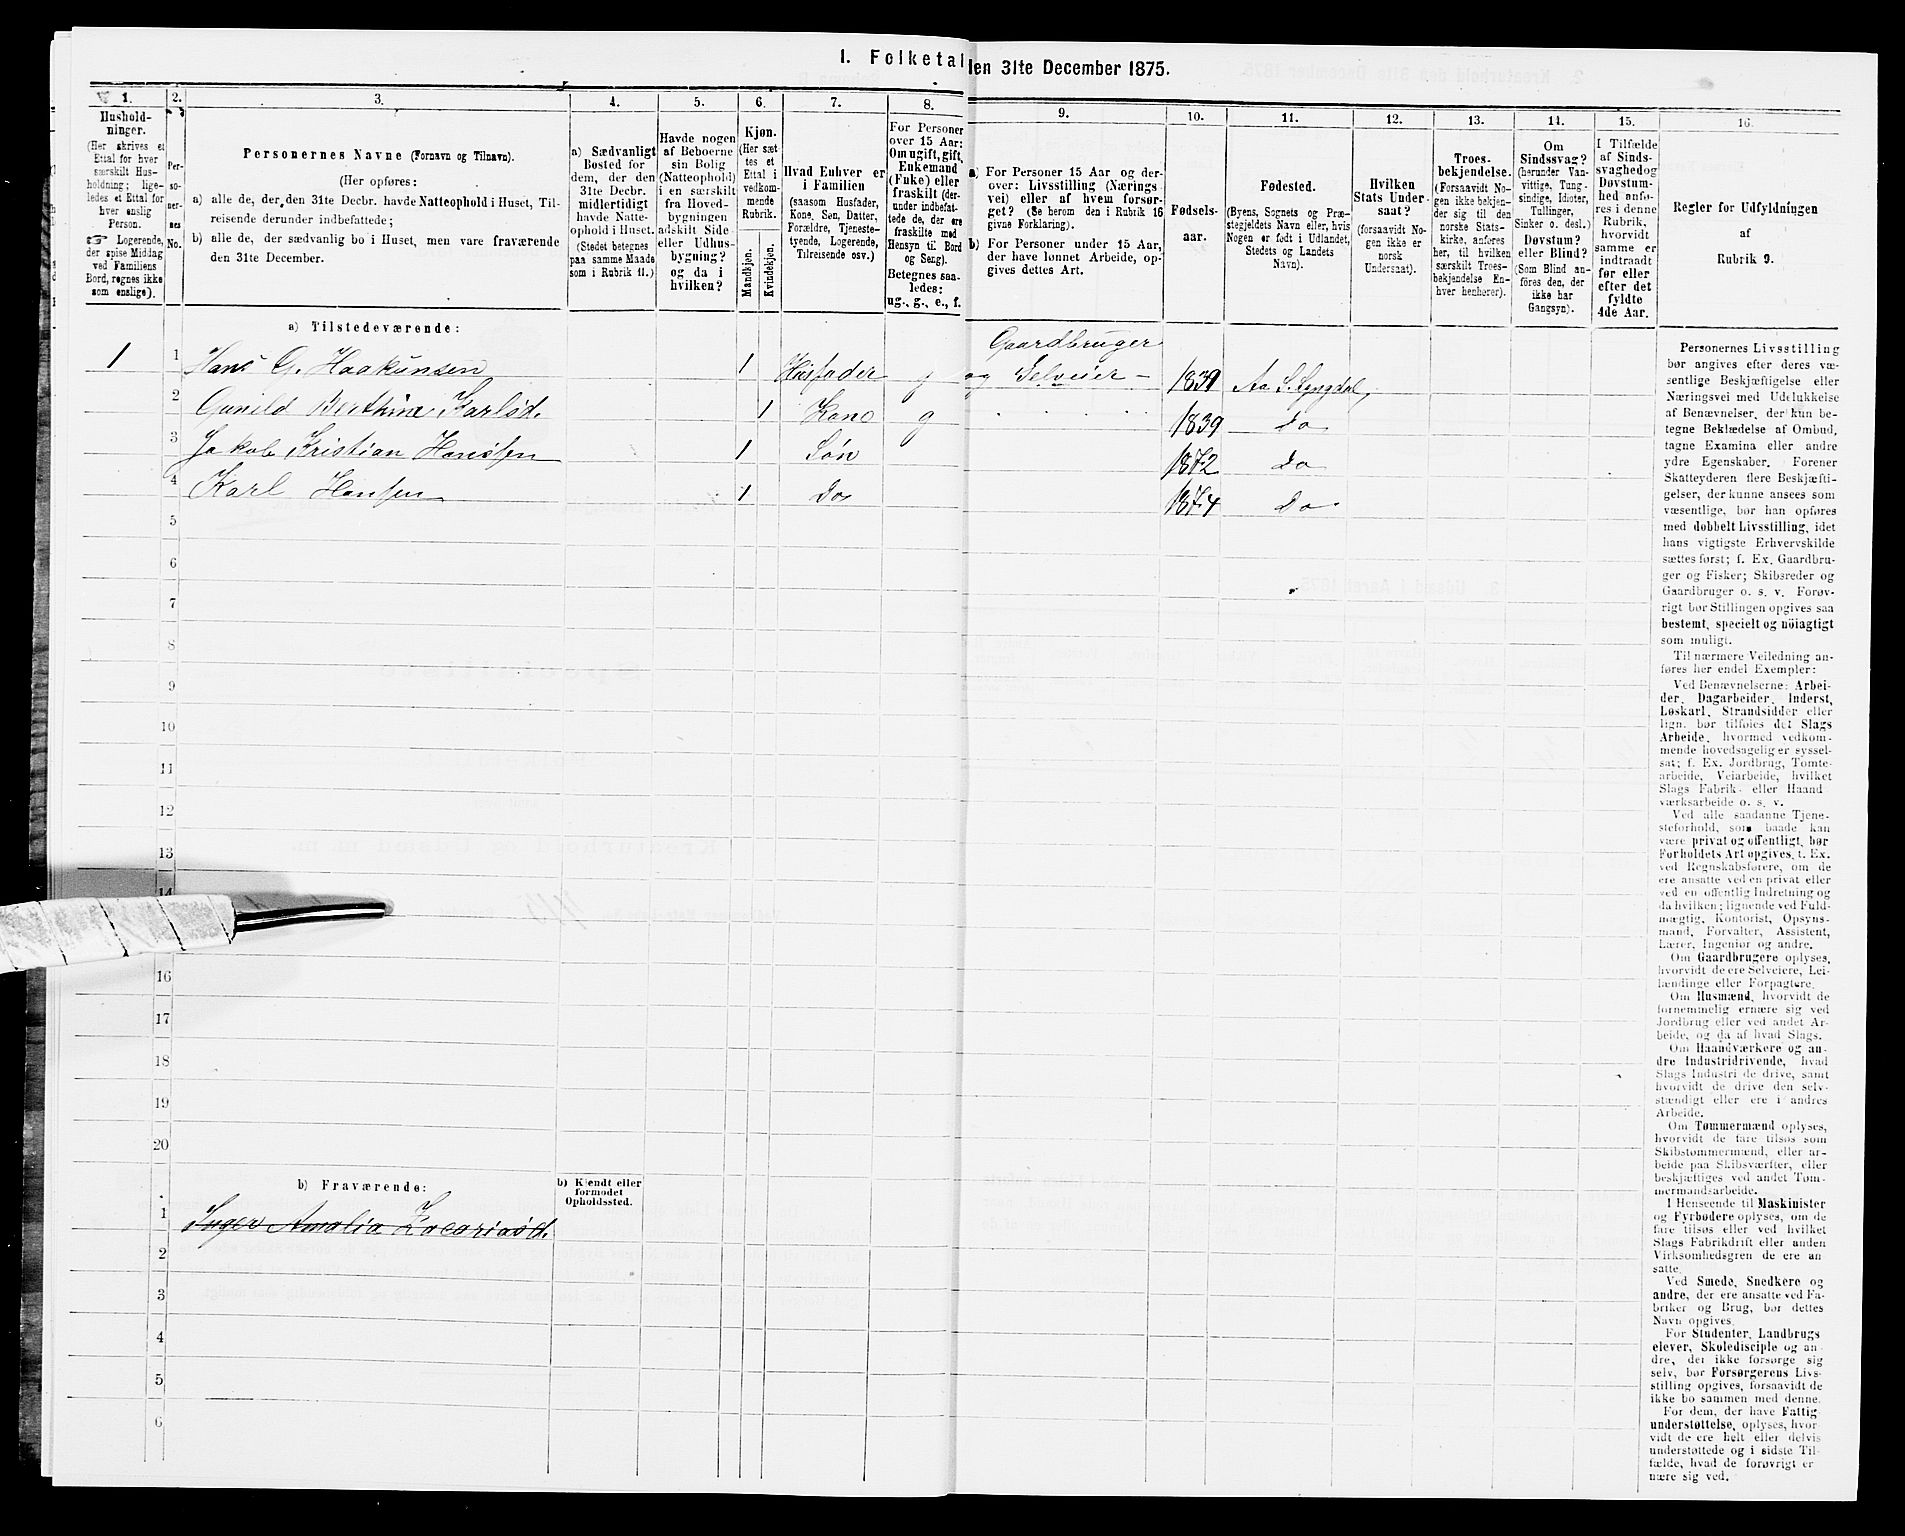 I. Folketal den 31te December 1875.
1.
Husholdninger.
(Her skrives et
Ettal for hver
særskilt Husholdning; ligeledes
et Ettal for
hver enslig
Person.
☞ Logerende,
der spise Middag
ved Familiens
Bord, regnes ikke
som enslige).
2.
Personernes
No.
3.
Personernes Navne (Fornavn og Tilnavn).
(Her opføres:
a) alle de, der den 31te Decbr. havde Natteophold i Huset, Tilreisende
derunder indbefattede;
b) alle de, der sædvanlig bo i Huset, men vare fraværende
den 31te December.
4.
a) Sædvanligt
Bosted for
dem, der den
31te Decbr.
midlertidigt
havde Natteophold
i Huset.
(Stedet betegnes
paa samme Maade
som i Rubrik 11.)
5.
Havde nogen
af Beboerne
sin Bolig
(Natteophold)
i en særskilt
fra Hovedbygningen
adskilt Side-
eller Udhusbygning?
og da i
hvilken?
6.
Kjøn.
(Her sættes
et
Ettal i
vedkommende
Rubrik.
Mandkjøn.
Kvindekjøn.
7.
Hvad Enhver er
i Familien
(saasom Husfader,
Kone, Søn, Datter,
Forældre, Tjenestetyende,
Logerende,
Tilreisende osv.)
8.
For Personer
over 15 Aar:
Om ugift, gift,
Enkemand
(Enke) eller
fraskilt (derunder
indbefattede
de, der ere
fraskilte med
Hensyn til Bord
og Seng).
Betegnes saaledes:
ug., g., e., f.
9.
a) For Personer 15 Aar og derover:
Livsstilling (Næringsvei)
eller af hvem forsørget?
(Se herom den i Rubrik 16
givne Forklaring).
b) For Personer under 15 Aar,
der have lønnet Arbeide, opgives
dettes Art.
10.
Fødselsaar.
11.
Fødested.
(Byens, Sognets og Præstegjeldets
Navn eller, hvis
Nogen er født i Udlandet,
Stedets og Landets
Navn).
12.
Hvilken
Stats Undersaat?
(forsaavidt Nogen
ikke er
norsk
Undersaat).
13.
Troesbekjendelse.
(Forsaavidt Nogen
ikke bekjender
sig til den
norske Statskirke,
anføres
her, til hvilken
særskilt Troesbekjendelse
Enhver
henhører).
14.
Om
Sindssvag?
(herunder Vanvittige,
Tungsindige,
Idioter,
Tullinger,
Sinker o. desl.)
Døvstum?
eller Blind?
(Som Blind anføres
den, der
ikke har
Gangsyn).
15.
I Tilfælde
af Sindssvaghed
og
Døvstumhed
anføres
i denne
Rubrik,
hvorvidt
samme er
indtraadt
før eller
efter det
fyldte
4de Aar.
16.
Regler for Udfyldningen
af
Rubrik 9.
a) Tilstedeværende:
1 1 Hans G. Haakunsen 1 Husfader g Gaardbruger og Selveier 1839 Aa S. Lyngdal
2 Gunild Berthine Karlsd. 1 Kone g 1839 do
3 Jakob Kristian Hansen 1 Søn 1872 do
4 Karl Hansen 1 do 1874 do
5
6
7
8
9
10
11
12
13
14
16
17
18
19
20
b) Fraværende:
b) Kjendt eller
formodet
Opholdssted.
1 Inger Amalia Zacariasd.
2
3
4
5
6
Personernes Livsstilling
bør angives efter deres væsentlige
Beskjæftigelse eller
Næringsvei med Udelukkelse
af Benævnelser, der kun betegne
Beklædelse af Ombud,
tagne Examina eller andre
ydre Egenskaber. Forener
Skatteyderen flere Beskjæftigelser,
der kunne ansees som
væsentlige, bør han opføres
med dobbelt Livsstilling, idet
hans vigtigste Erhvervskilde
sættes først; f. Ex. Gaardbruger
og Fisker; Skibsreder og
Gaardbruger o. s. v. Forøvrigt
bør Stillingen opgives saa
bestemt, specielt og nøiagtigt
som muligt.
Til nærmere Veiledning anføres
her endel Exempler:
Ved Benævnelserne: Arbeider,
Dagarbeider, Inderst,
Løskarl, Strandsidder eller
lign. bør tilføies det Slags
Arbeide, hvormed vedkommende
hovedsagelig er sysselsat;
f. Ex. Jordbrug, Tomtearbeide,
Veiarbeide, hvilket
Slags Fabrik- eller Haandværksarbeide
o. s. v.
Ved alle saadanne Tjenesteforhold,
som baade kan
være privat og offentligt, bør
Forholdets Art opgives, f. Ex.
ved Regnskabsførere, om de
ere ansatte ved en privat eller
ved en offentlig Indretning og
da hvilken; lignende ved Fuldmægtig,
Kontorist, Opsynsmand,
Forvalter, Assistent,
Lærer, Ingeniør og andre.
Om Gaardbrugere oplyses,
hvorvidt de ere Selveiere, Leilændinge
eller Forpagtere.
Om Husmænd, hvorvidt de
fornemmelig ernære sig ved
Jordbrug eller ved andet Arbeide,
og da af hvad Slags.
Om Haandværkere og andre
Industridrivende, hvad
Slags Industri de drive, samt
hvorvidt de drive den selvstændigt
eller ere i andres
Arbeide.
Om Tømmermænd oplyses,
hvorvidt de fare tilsøs som
Skibstømmermænd, eller arbeide
paa Skibsværfter, eller
beskjæftiges ved andet Tømmermandsarbeide.
I Henseende til Maskinister
og Fyrbødere oplyses, om de
fare tilsøs eller ved hvilket
Slags Fabrikdrift eller anden
Virksomhedsgren de ere ansatte.
Ved Smede, Snedkere og
andre, der ere ansatte ved Fabriker
og Brug, bør dettes
Navn opgives.
For Studenter, Landbrugselever,
Skoledisciple og andre,
der ikke forsørge sig
selv, bør Forsørgerens Livsstilling
opgives, forsaavidt de
ikke bo sammen med denne.
For dem, der have Fattigunderstøttelse,
oplyses, hvorvidt
de ere helt eller delvis
understøttede og i sidste Tilfælde,
hvad de forøvrigt ernære
sig ved.